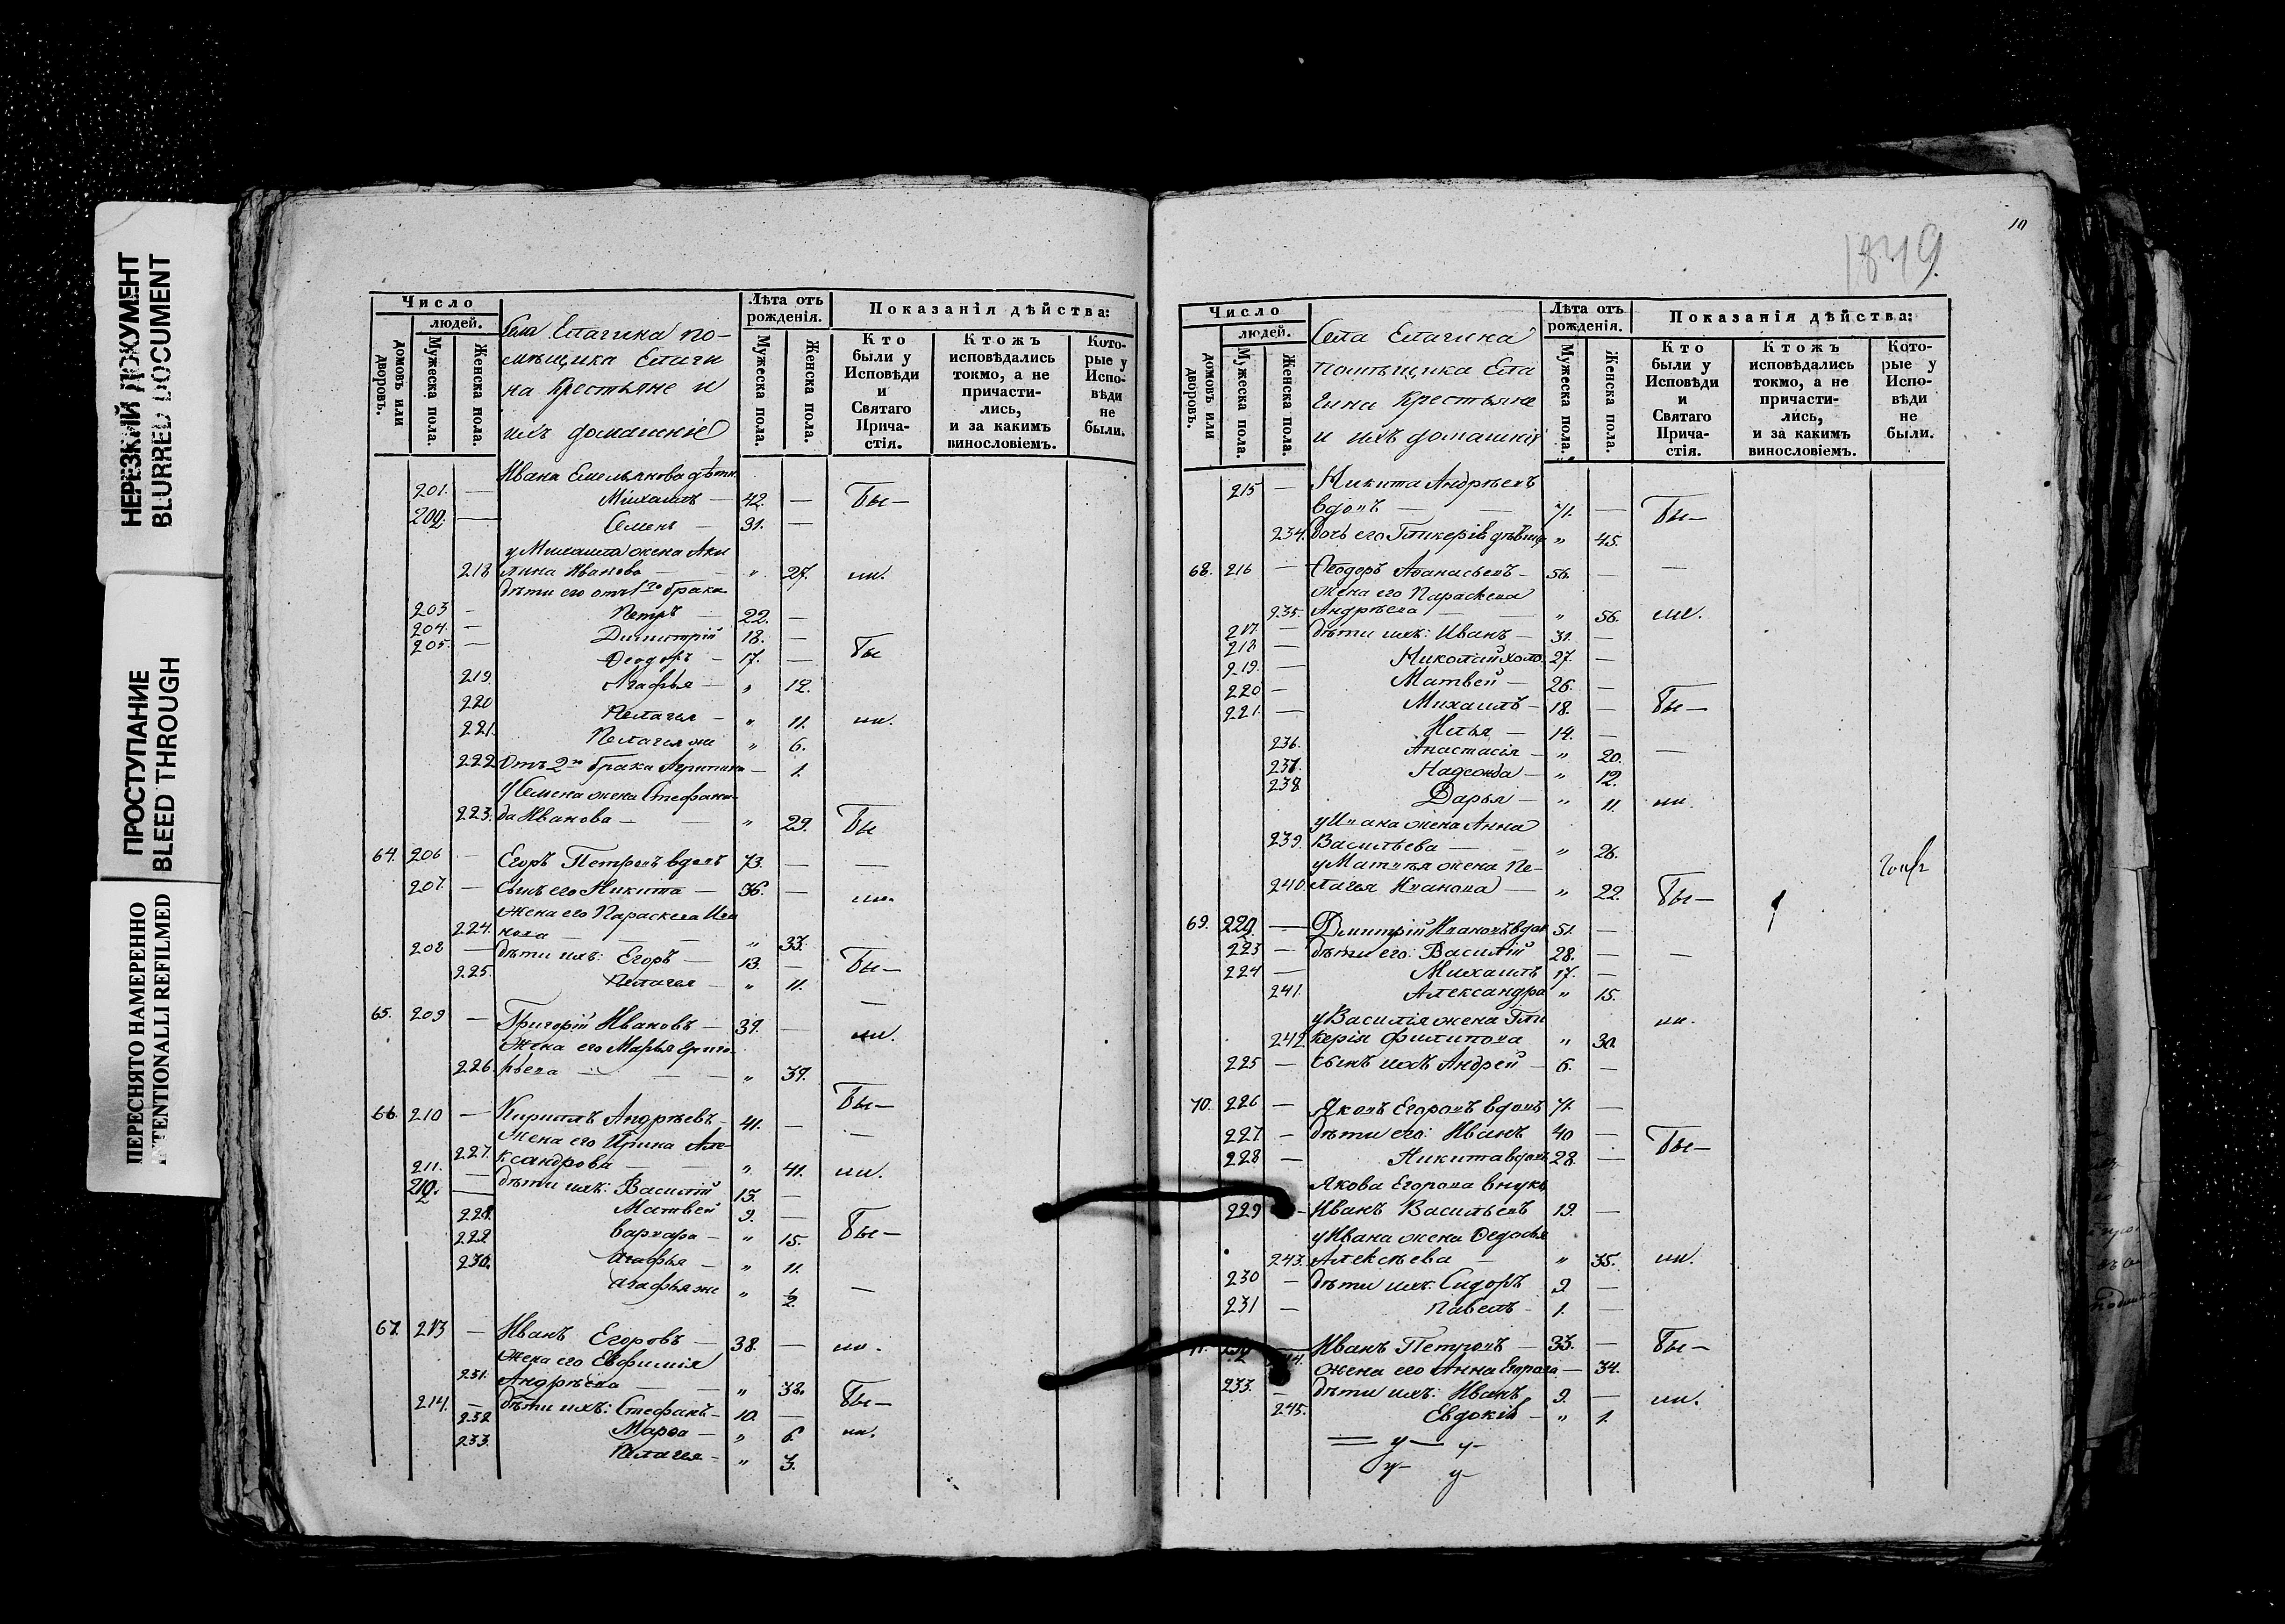 НЕРЕЗКИЙ ДОКУМЕНТ
BLURRED DOCUMENT
ПРОСТУПАНИЕ
BLEED THROUGH
ПЕРЕСНЯТО НАМЕРЕННО
INTENTIONALLI REFILMED
Число
людей.
домовъ или дворовъ.
Мужеска пола.
Женска пола.
Села Елагина по-
мѣщика Елаги
на крестьяне и
ихъ домашніе
Лѣта отъ рожденія.
Мужеска пола.
Женска пола.
Показанія дѣйства:
Кто были у Исповѣди и Святаго Прича-стія.
Ктожъ исповѣдались токмо, а не причасти-лись, и за какимъ винословіемъ.
Кото-рые у Испо-вѣди не были.
Ивана Емельянова дѣти
201. — Михаилъ — 42. — Бы—
202. — Семенъ — 31. —
у Михаила жена Аки
218 лина Иванова — " 27. ли.
дѣти его отъ 1го брака
203 — Петръ — 22. —
204. — Димитрій 18. —
205. — Ѳеодоръ — 17. — Бы
219. Агафья — " 12.
220 Пелагея — " 11. ли.
221. Пелагея же " 6.
222 Отъ 2го брака Агрипина — 1.
У Семена жена Стефани-
223. да Иванова — — " 29. Бы
64. 206 — Егоръ Петровъ вдовъ 73. — —
207. — Сынъ его Никита — 36. — ли.
Жена его Параскева Ива
224. нова — — " 33.
208 — дѣти ихъ: Егоръ — 13. — Бы—
225. Пелагея — " 11. —
65. 209 — Григорій Ивановъ — 39. — ли.
Жена его Марья Григо-
226. рьева — — " 39.
Бы—
66. 210 — Кирилъ Андрѣевъ — 41. — —
Жена его Ирина Але-
227. ксандрова — — " 41. ли.
211. — дѣти ихъ: Василій 13. —
212. — Матвей 9. —
228. Варвара — " 15. Бы—
229 Агафья — " 11.
230. Агафья же " ½. —
67. 213 — Иванъ Егоровъ — 38. — ли.
Жена его Евфимія
231. Андрѣева — — " 38.
214. — дѣти ихъ: Стефанъ — 10. — Бы—
232 Марѳа — " 6. ли.
233. Пелагея — " 3.
10
1849
Число
людей.
домовъ или дворовъ.
Мужеска пола.
Женска пола.
Села Елагина
помѣщика Ела
гина крестьяне
и ихъ домашнія
Лѣта отъ рожденія.
Мужеска пола.
Женска пола.
Показанія дѣйства:
Кто были у Исповѣди и Святаго Прича-стія.
Ктожъ исповѣдались токмо, а не причасти-лись, и за какимъ винословіемъ.
Кото-рые у Испо-вѣди не были.
215 — Никита Андрѣевъ
вдовъ — — 71. — Бы—
234. Дочь его Гликерія дѣвица " 45.
68. 216 — Ѳеодоръ Аѳанасьевъ — 56. — —
Жена его Параскева
235. Андрѣева — — " 56. ли.
217. — дѣти ихъ: Иванъ — 31. —
218 — Николай холо. 27. —
219. — Матвей — 26. —
220 — Михаилъ — 18. — Бы—
221. — Илья — 14. —
236. Анастасія — " 20. —
237. Надежда — " 12.
238 Дарья — " 11. ли.
у Ивана жена Анна
239. Васильева — — " 26.
у Матвѣя жена Пе-
240. лагея Иванова — " 22. Бы—
69. 222. — Димитрій Ивановъ вдов 51. —
223 — дѣти его: Василій 28. — —
224 — Михаилъ 17. —
241. Александра " 15.
у Василія жена Гли ли.
242. керія Филипова " 30.
225 — Сынъ ихъ Андрей — 6. —
70. 226 — Яковъ Егоровъ вдовъ 71. —
227 — дѣти его: Иванъ 40 —
228 — Никита вдовъ 28. — Бы—
Якова Егорова внукъ
229 — Иванъ Васильевъ 19. —
у Ивана жена Ѳедосья
243. Алексѣева — " 35. ли.
230 — дѣти ихъ: Сидоръ 9. —
231 — Павелъ — 1. —
Иванъ Петровъ — 33. — Бы—
жена его Анна Егорова — 34.
233. — дѣти ихъ: Иванъ 9. — ли.
245. Евдокія — " 1.